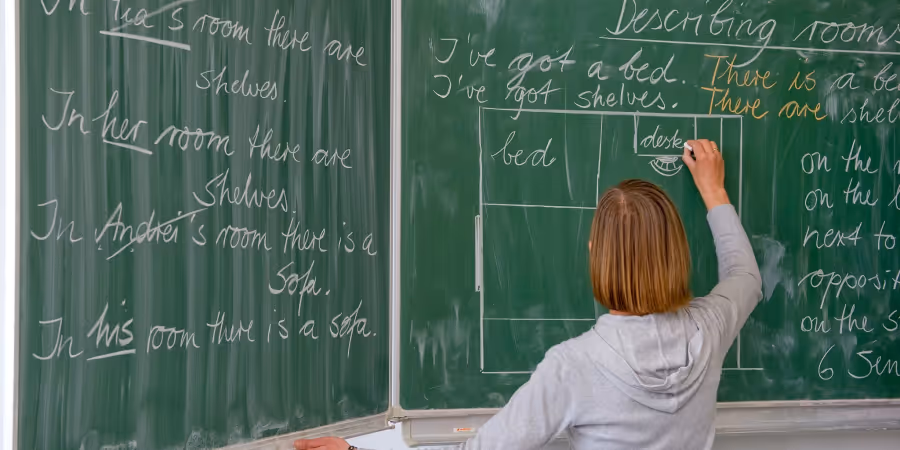 In Tea's room there are
shelves.
In her room there are
shelves.
In Andrei's room there is a
sofa.
In his room there is a sofa.
Describing rooms
I've got a bed. There is a be
I've got shelves. There are shel
bed
desk
on the
on the
next to
opposit
on the s
6 Sen